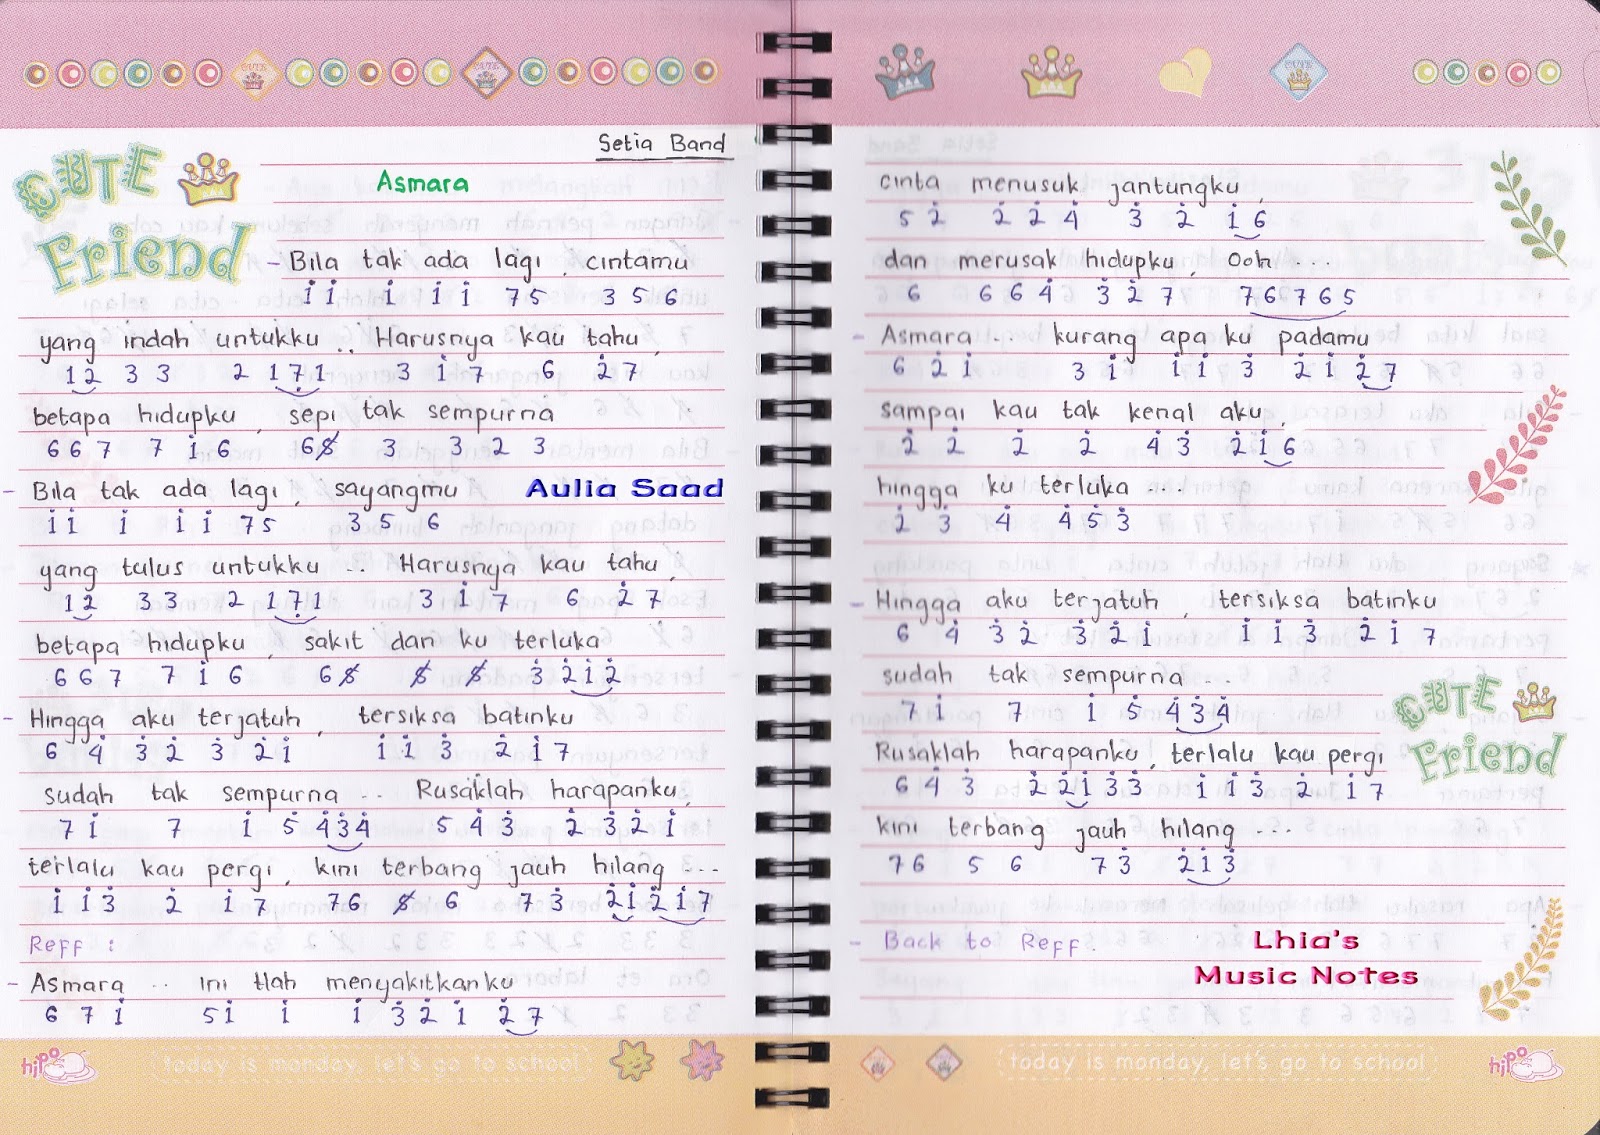 Setia Band
CUTE
Friend
Asmara
- Bila tak ada lagi, cintamu
i i i i i 7 5 3 5 6
yang indah untukku .. Harusnya kau tahu,
1 2 3 3 2 1 7̣ 1 3 i 7 6 2̇ 7
betapa hidupku, sepi tak sempurna
6 6 7 7 i 6 6 5̸ 3 3 2 3
- Bila tak ada lagi, sayangmu
Aulia Saad
i i i i i 7 5 3 5 6
yang tulus untukku .. Harusnya kau tahu,
1 2 3 3 2 1 7̣ 1 3 i 7 6 2̇ 7
betapa hidupku, sakit dan ku terluka
6 6 7 7 i 6 6 5̸ 5̸ 5̸ 3̇ 2̇ i 2̇
- Hingga aku terjatuh, tersiksa batinku
6 4̇ 3̇ 2̇ 3̇ 2̇ i i i 3̇ 2̇ i 7
sudah tak sempurna .. Rusaklah harapanku,
7 i 7 i 5̇ 4̇ 3̇ 4̇ 5̇ 4̇ 3̇ 2̇ 3̇ 2̇ i
terlalu kau pergi, kini terbang jauh hilang ...
i i 3̇ 2̇ i 7 7 6 5̸ 6 7 3̇ 2̇ i 2̇ i 7
Reff :
- Asmara .. ini tlah menyakitkanku
6 7 i 5 i i i 3̇ 2̇ i 2̇ 7
hipo
today is monday, let's go to school
cinta menusuk jantungku,
5 2̇ 2̇ 2̇ 4̇ 3̇ 2̇ i 6
dan merusak hidupku, Ooh ...
6 6 6 4̇ 3̇ 2̇ 7 7 6 7 6 5
- Asmara ... kurang apa ku padamu
6 2̇ i 3 i i i 3̇ 2̇ i 2̇ 7
sampai kau tak kenal aku,
2̇ 2̇ 2̇ 2̇ 4̇ 3̇ 2̇ i 6
hingga ku terluka ...
2̇ 3̇ 4̇ 4̇ 5̇ 3̇
- Hingga aku terjatuh, tersiksa batinku
6 4̇ 3̇ 2̇ 3̇ 2̇ i i i 3̇ 2̇ i 7
sudah tak sempurna ...
7 i 7 i 5̇ 4̇ 3̇ 4̇
CUTE
Friend
Rusaklah harapanku, terlalu kau pergi
6 4̇ 3̇ 2̇ 2̇ i 3̇ 3̇ i i 3̇ 2̇ i 7
kini terbang jauh hilang ...
7 6 5 6 7 3̇ 2̇ i 3̇
- Back to Reff
Lhia's
Music Notes
today is monday, let's go to school
hipo